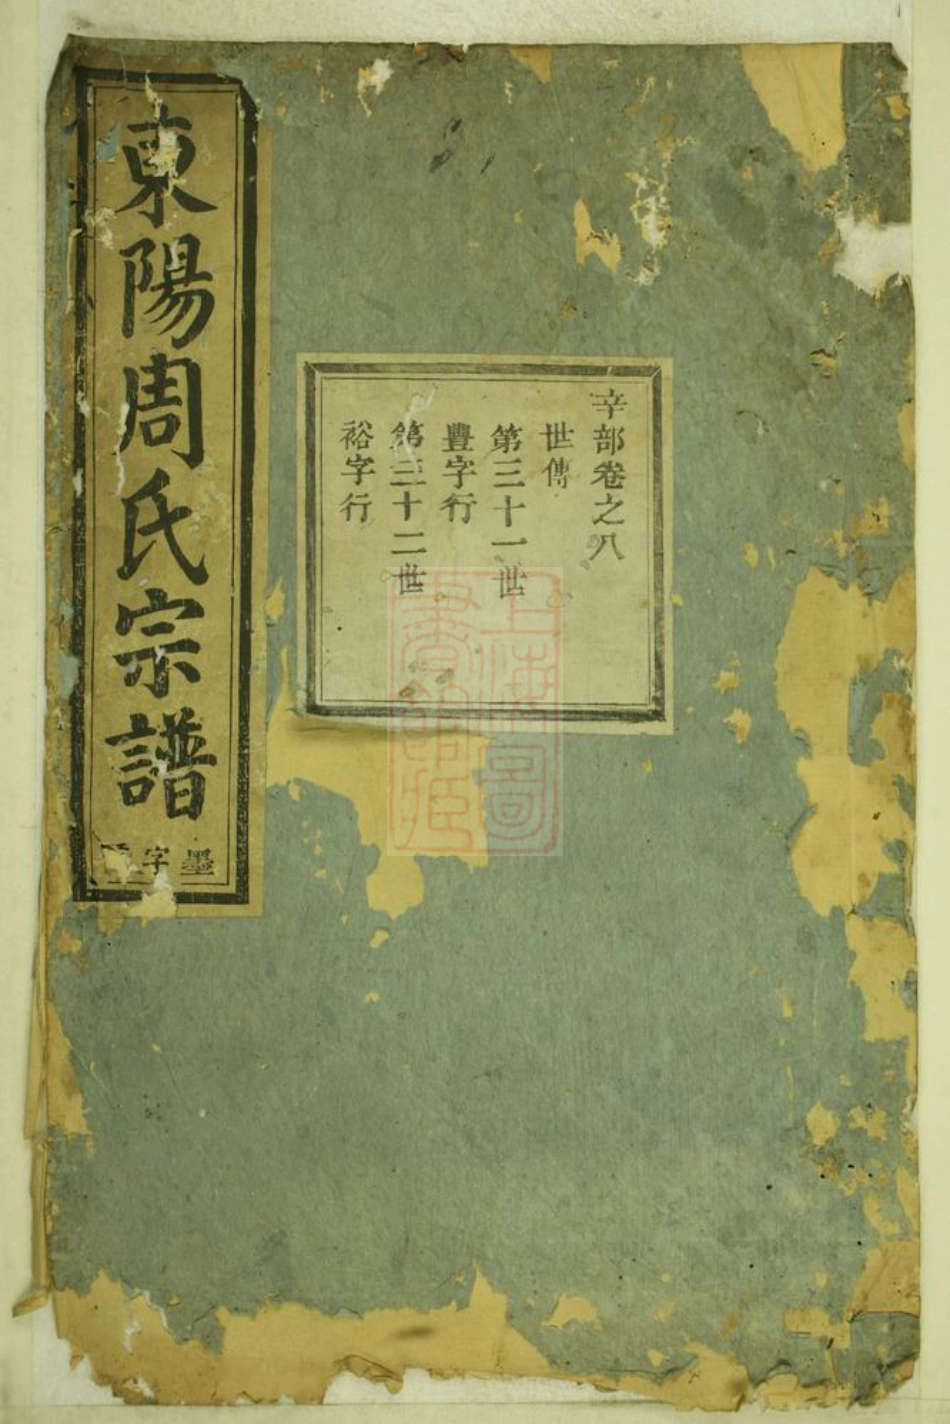 辛部卷之八
世傳
第三十一世
豐字行
第三十二世
裕字行
東陽周氏宗譜
墨字
上海圖書館藏